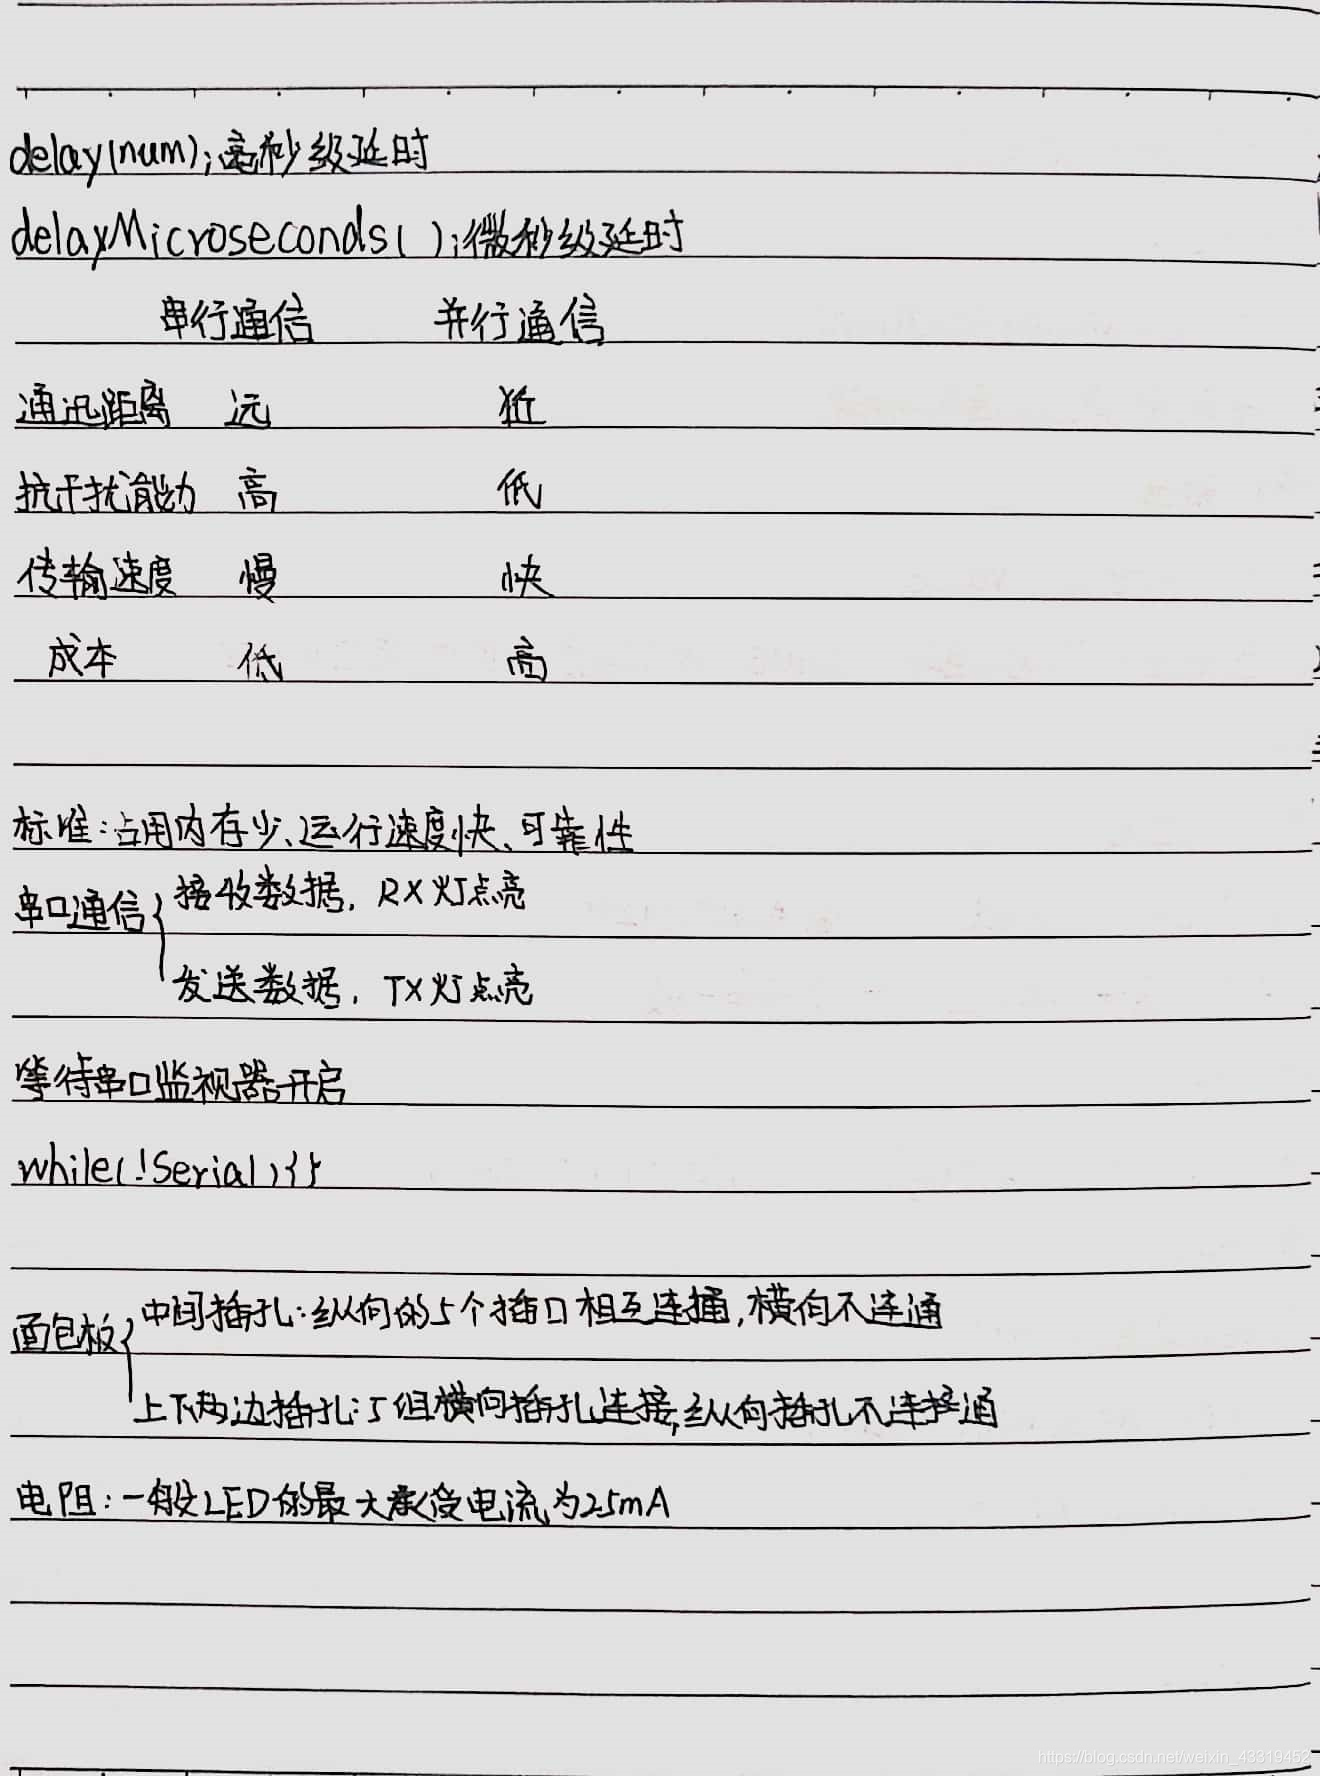 delay(num);毫秒级延时
delayMicroseconds( );微秒级延时
串行通信 并行通信
通迅距离 远 近
抗干扰能力 高 低
传输速度 慢 快
成本 低 高
标准:占用内存少、运行速度快、可靠性
串口通信{接收数据, RX灯点亮
发送数据, TX灯点亮
等待串口监视器开启
while(!Serial){}
面包板{中间插孔:纵向的5个插口相互连通,横向不连通
上下两边插孔:5组横向插孔连接,纵向插孔不连接通
电阻:一般LED的最大承受电流为25mA
https://blog.csdn.net/weixin_43319452